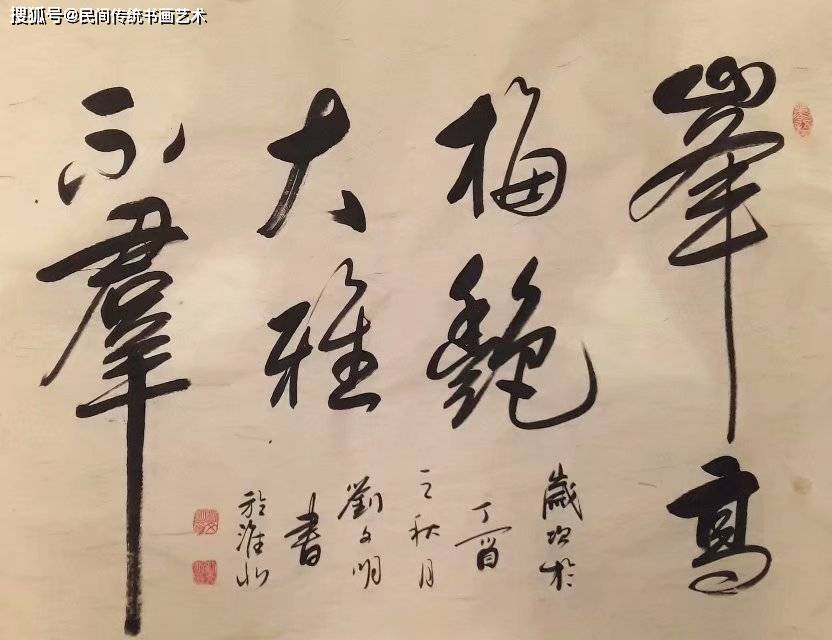 搜狐号@民间传统书画艺术
峯高
梅艷
大雅
不群
歲次於
丁酉
之秋月
劉文明
書
於淮北